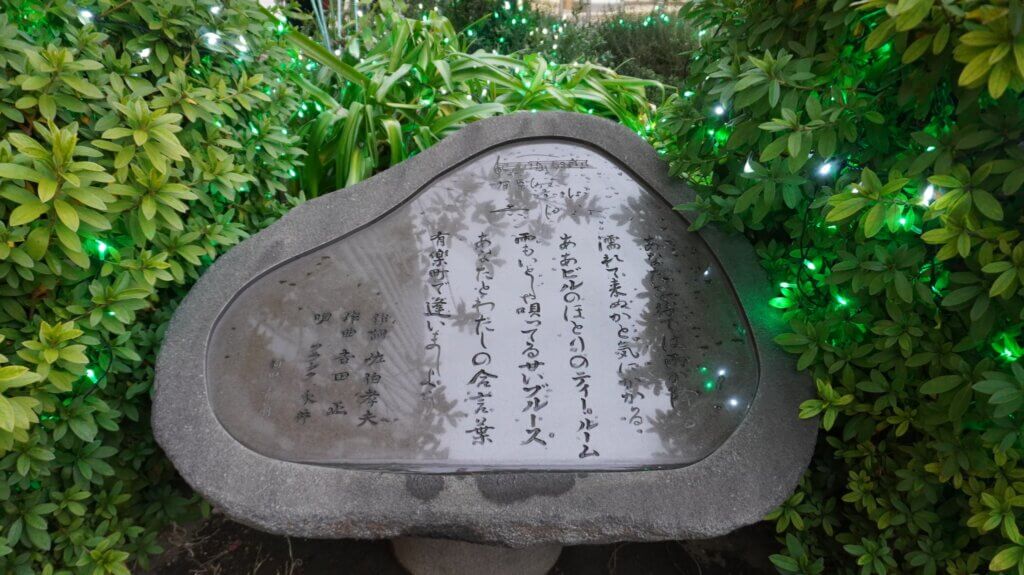 あなたを待てば雨が降る
濡れて来ぬかと気にかかる。
ああビルのほとりのティー・ルーム
雨もいとしや唄ってる甘いブルース。
あなたとわたしの合言葉
有楽町で逢いましょう
作詞 佐伯孝夫
作曲 吉田 正
唄 フランク永井